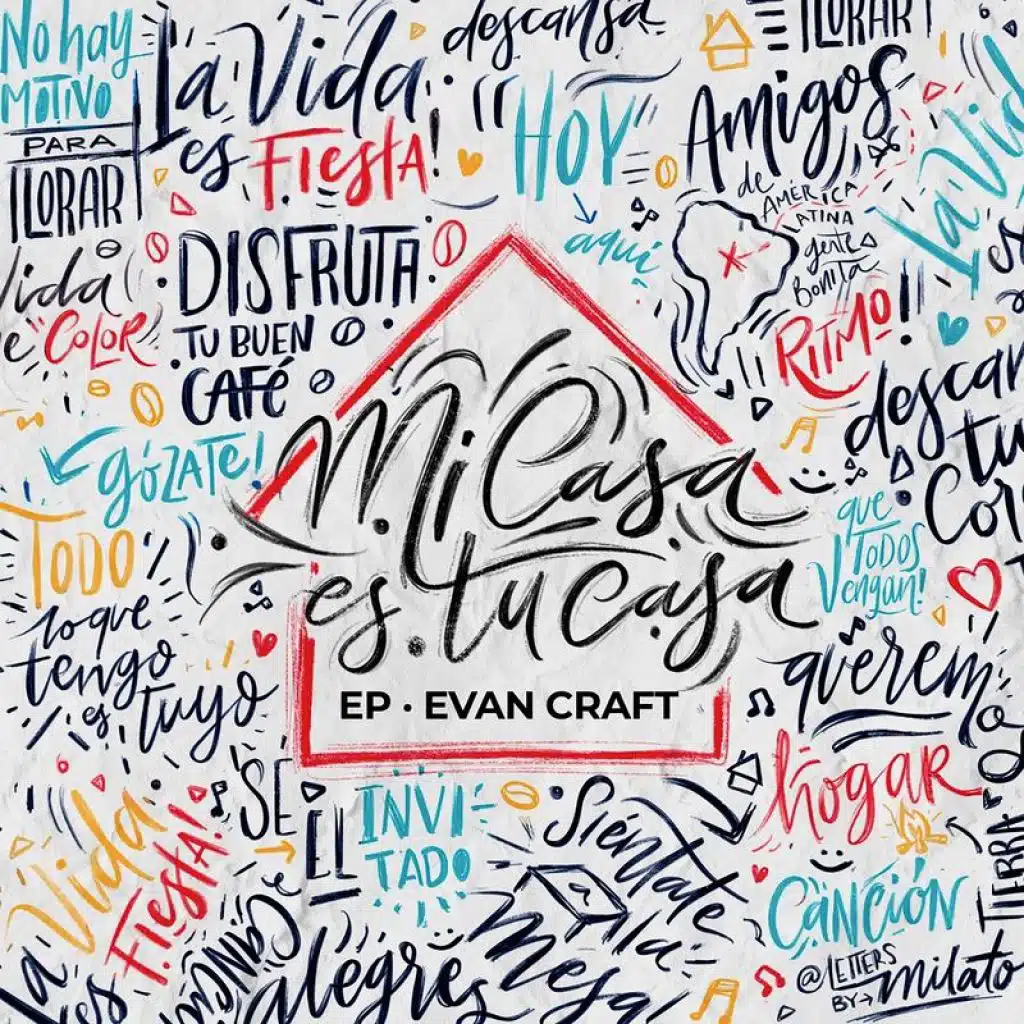 No hay
MOTIVO
PARA
LLORAR
La Vida
es FIESTA!
descansa
"HOY"
aquí
LLORAR
Amigos
de
AMÉRICA
LATINA
gente
Bonita
La Vid
es
Vida
e COLOR
DISFRUTA
TU BUEN
CAFÉ
RITMO!
descan
tu
Cor
GÓZATE!
Mi Casa
es tu casa
EP · EVAN CRAFT
TODO
lo que
tengo
es tuyo
que
TODOS
Vengan!
querem
hogar
La Vida
es FIESTA!
SE
EL
INVI
TADO
Siéntate
a la
Mesa
alegres
CANCIÓN
TIERRA
@LETTERS
BY→ milato